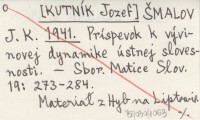 [KUTNÍK Jozef] ŠMALOV
J. K. 1941. Príspevok k vývi-
novej dynamike ústnej sloves-
nosti. — Sbor. Matice Slov.
19: 273-284.
Materiál z Hýb na Liptove